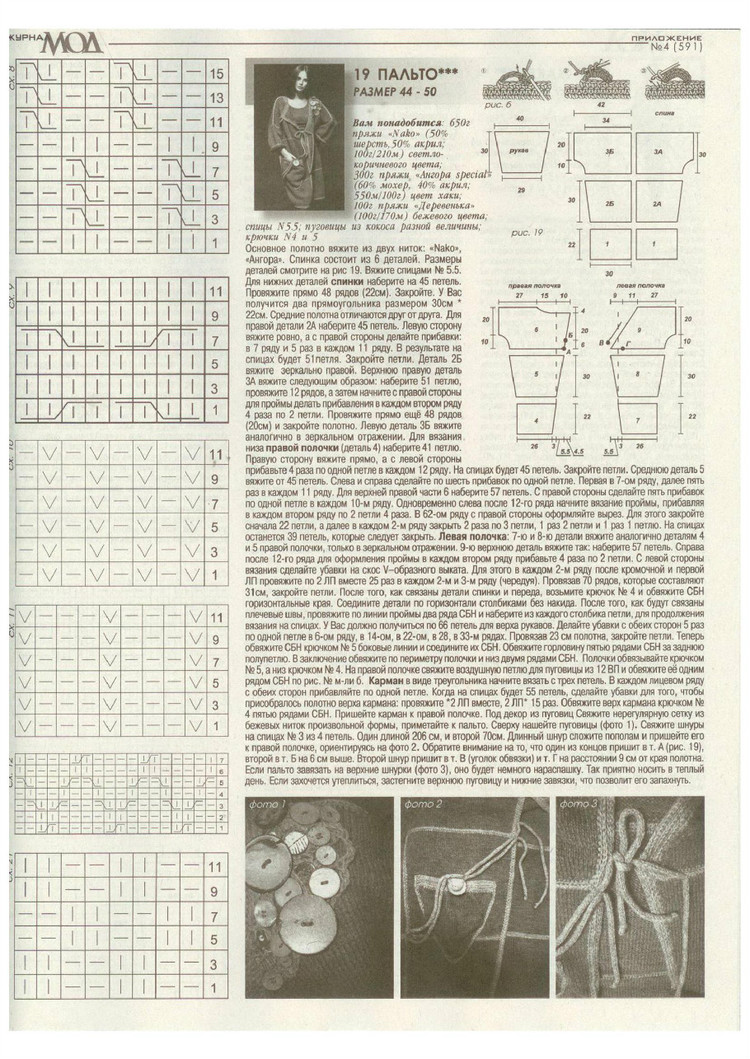 ЖУРНАЛ МОД
ПРИЛОЖЕНИЕ
№4 (591)
19 ПАЛЬТО***
РАЗМЕР 44 - 50
Вам понадобится: 650г
пряжи «Nako» (50%
шерсть, 50% акрил;
100г/210м) светло-
коричневого цвета;
300г пряжи «Ангора special»
(60% мохер, 40% акрил;
550м/100г) цвет хаки;
100г пряжи «Деревенька»
(100г/170м) бежевого цвета;
спицы N5.5; пуговицы из кокоса разной величины;
крючки N4 и 5
Основное полотно вяжите из двух ниток: «Nako»,
«Ангора». Спинка состоит из 6 деталей. Размеры
деталей смотрите на рис 19. Вяжите спицами № 5.5.
Для нижних деталей спинки наберите на 45 петель.
Провяжите прямо 48 рядов (22см). Закройте. У Вас
получится два прямоугольника размером 30см *
22см. Средние полотна отличаются друг от друга. Для
правой детали 2А наберите 45 петель. Левую сторону
вяжите ровно, а с правой стороны делайте прибавки:
в 7 ряду и 5 раз в каждом 11 ряду. В результате на
спицах будет 51петля. Закройте петли. Деталь 2Б
вяжите зеркально правой. Верхнюю правую деталь
3А вяжите следующим образом: наберите 51 петлю,
провяжите 12 рядов, а затем начните с правой стороны
для проймы делать прибавления в каждом втором ряду
4 раза по 2 петли. Провяжите прямо ещё 48 рядов
(20см) и закройте полотно. Левую деталь 3Б вяжите
аналогично в зеркальном отражении. Для вязания
низа правой полочки (деталь 4) наберите 41 петлю.
Правую сторону вяжите прямо, а с левой стороны
прибавьте 4 раза по одной петле в каждом 12 ряду. На спицах будет 45 петель. Закройте петли. Среднюю деталь 5
вяжите от 45 петель. Слева и справа сделайте по шесть прибавок по одной петле. Первая в 7-ом ряду, далее пять
раз в каждом 11 ряду. Для верхней правой части 6 наберите 57 петель. С правой стороны сделайте пять прибавок
по одной петле в каждом 10-м ряду. Одновременно слева после 12-го ряда начните вязание проймы, прибавляя
в каждом втором ряду по 2 петли 4 раза. В 62-ом ряду с правой стороны оформляйте вырез. Для этого закройте
сначала 22 петли, а далее в каждом 2-м ряду закрыть 2 раза по 3 петли, 1 раз 2 петли и 1 раз 1 петлю. На спицах
останется 39 петель, которые следует закрыть. Левая полочка: 7-ю и 8-ю детали вяжите аналогично деталям 4
и 5 правой полочки, только в зеркальном отражении. 9-ю верхнюю деталь вяжите так: наберите 57 петель. Справа
после 12-го ряда для оформления проймы в каждом втором ряду прибавьте 4 раза по 2 петли. С левой стороны
вязания сделайте убавки на скос V–образного выката. Для этого в каждом 2-м ряду после кромочной и первой
ЛП провяжите по 2 ЛП вместе 25 раз в каждом 2-м и 3-м ряду (чередуя). Провязав 70 рядов, которые составляют
31см, закройте петли. После того, как связаны детали спинки и переда, возьмите крючок № 4 и обвяжите СБН
горизонтальные края. Соедините детали по горизонтали столбиками без накида. После того, как будут связаны
плечевые швы, провяжите по линии проймы два ряда СБН и наберите из каждого столбика петли, для продолжения
вязания на спицах. У Вас должно получиться по 66 петель для верха рукавов. Делайте убавки с обеих сторон 5 раз
по одной петле в 6-ом ряду, в 14-ом, в 22-ом, в 28, в 33-м рядах. Провязав 23 см полотна, закройте петли. Теперь
обвяжите СБН крючком № 5 боковые линии и соедините их СБН. Обвяжите горловину пятью рядами СБН за заднюю
полупетлю. В заключение обвяжите по периметру полочки и низ двумя рядами СБН. Полочки обвязывайте крючком
№ 5, а низ крючком № 4. На правой полочке свяжите воздушную петлю для пуговицы из 12 ВП и обвяжите её одним
рядом СБН по рис. № м-ли б. Карман в виде треугольника начните вязать с трех петель. В каждом лицевом ряду
с обеих сторон прибавляйте по одной петле. Когда на спицах будет 55 петель, сделайте убавки для того, чтобы
присобралось полотно верха кармана: провяжите *2 ЛП вместе, 2 ЛП* 15 раз. Обвяжите верх кармана крючком №
4 пятью рядами СБН. Пришейте карман к правой полочке. Под декор из пуговиц Свяжите нерегулярную сетку из
бежевых ниток произвольной формы, приметайте к пальто. Сверху нашейте пуговицы (фото 1). Свяжите шнуры
на спицах № 3 из 4 петель. Один длиной 206 см, и второй 70см. Длинный шнур сложите пополам и пришейте его
к правой полочке, ориентируясь на фото 2. Обратите внимание на то, что один из концов пришит в т. А (рис. 19),
второй в т. Б на 6 см выше. Второй шнур пришит в т. В (уголок обвязки) и т. Г на расстоянии 9 см от края полотна.
Если пальто завязать на верхние шнурки (фото 3), оно будет немного нараспашку. Так приятно носить в теплый
день. Если захочется утеплиться, застегните верхнюю пуговицу и нижние завязки, что позволит его запахнуть.
рис. 6
42
34
спинка
40
рукав
30
29
3Б
3А
20
10
30
2Б
2А
рис. 19
22
1
1
30
правая полочка
27 15 10
левая полочка
9 11 27
20
10
6
4
20
6
Б
А
В
Г
9
20
10
5
30
8
30
4
22
7
22
26 3
5.5 4.5
5.5
3 26
сх. 8
15
13
11
9
7
5
3
1
сх. 9
11
9
7
5
3
1
сх. 10
11
9
7
5
3
1
сх. 11
11
9
7
5
3
1
сх. 12
7
6
5
4
3
2
1
сх. 21
11
9
7
5
3
1
фото 1
фото 2
фото 3